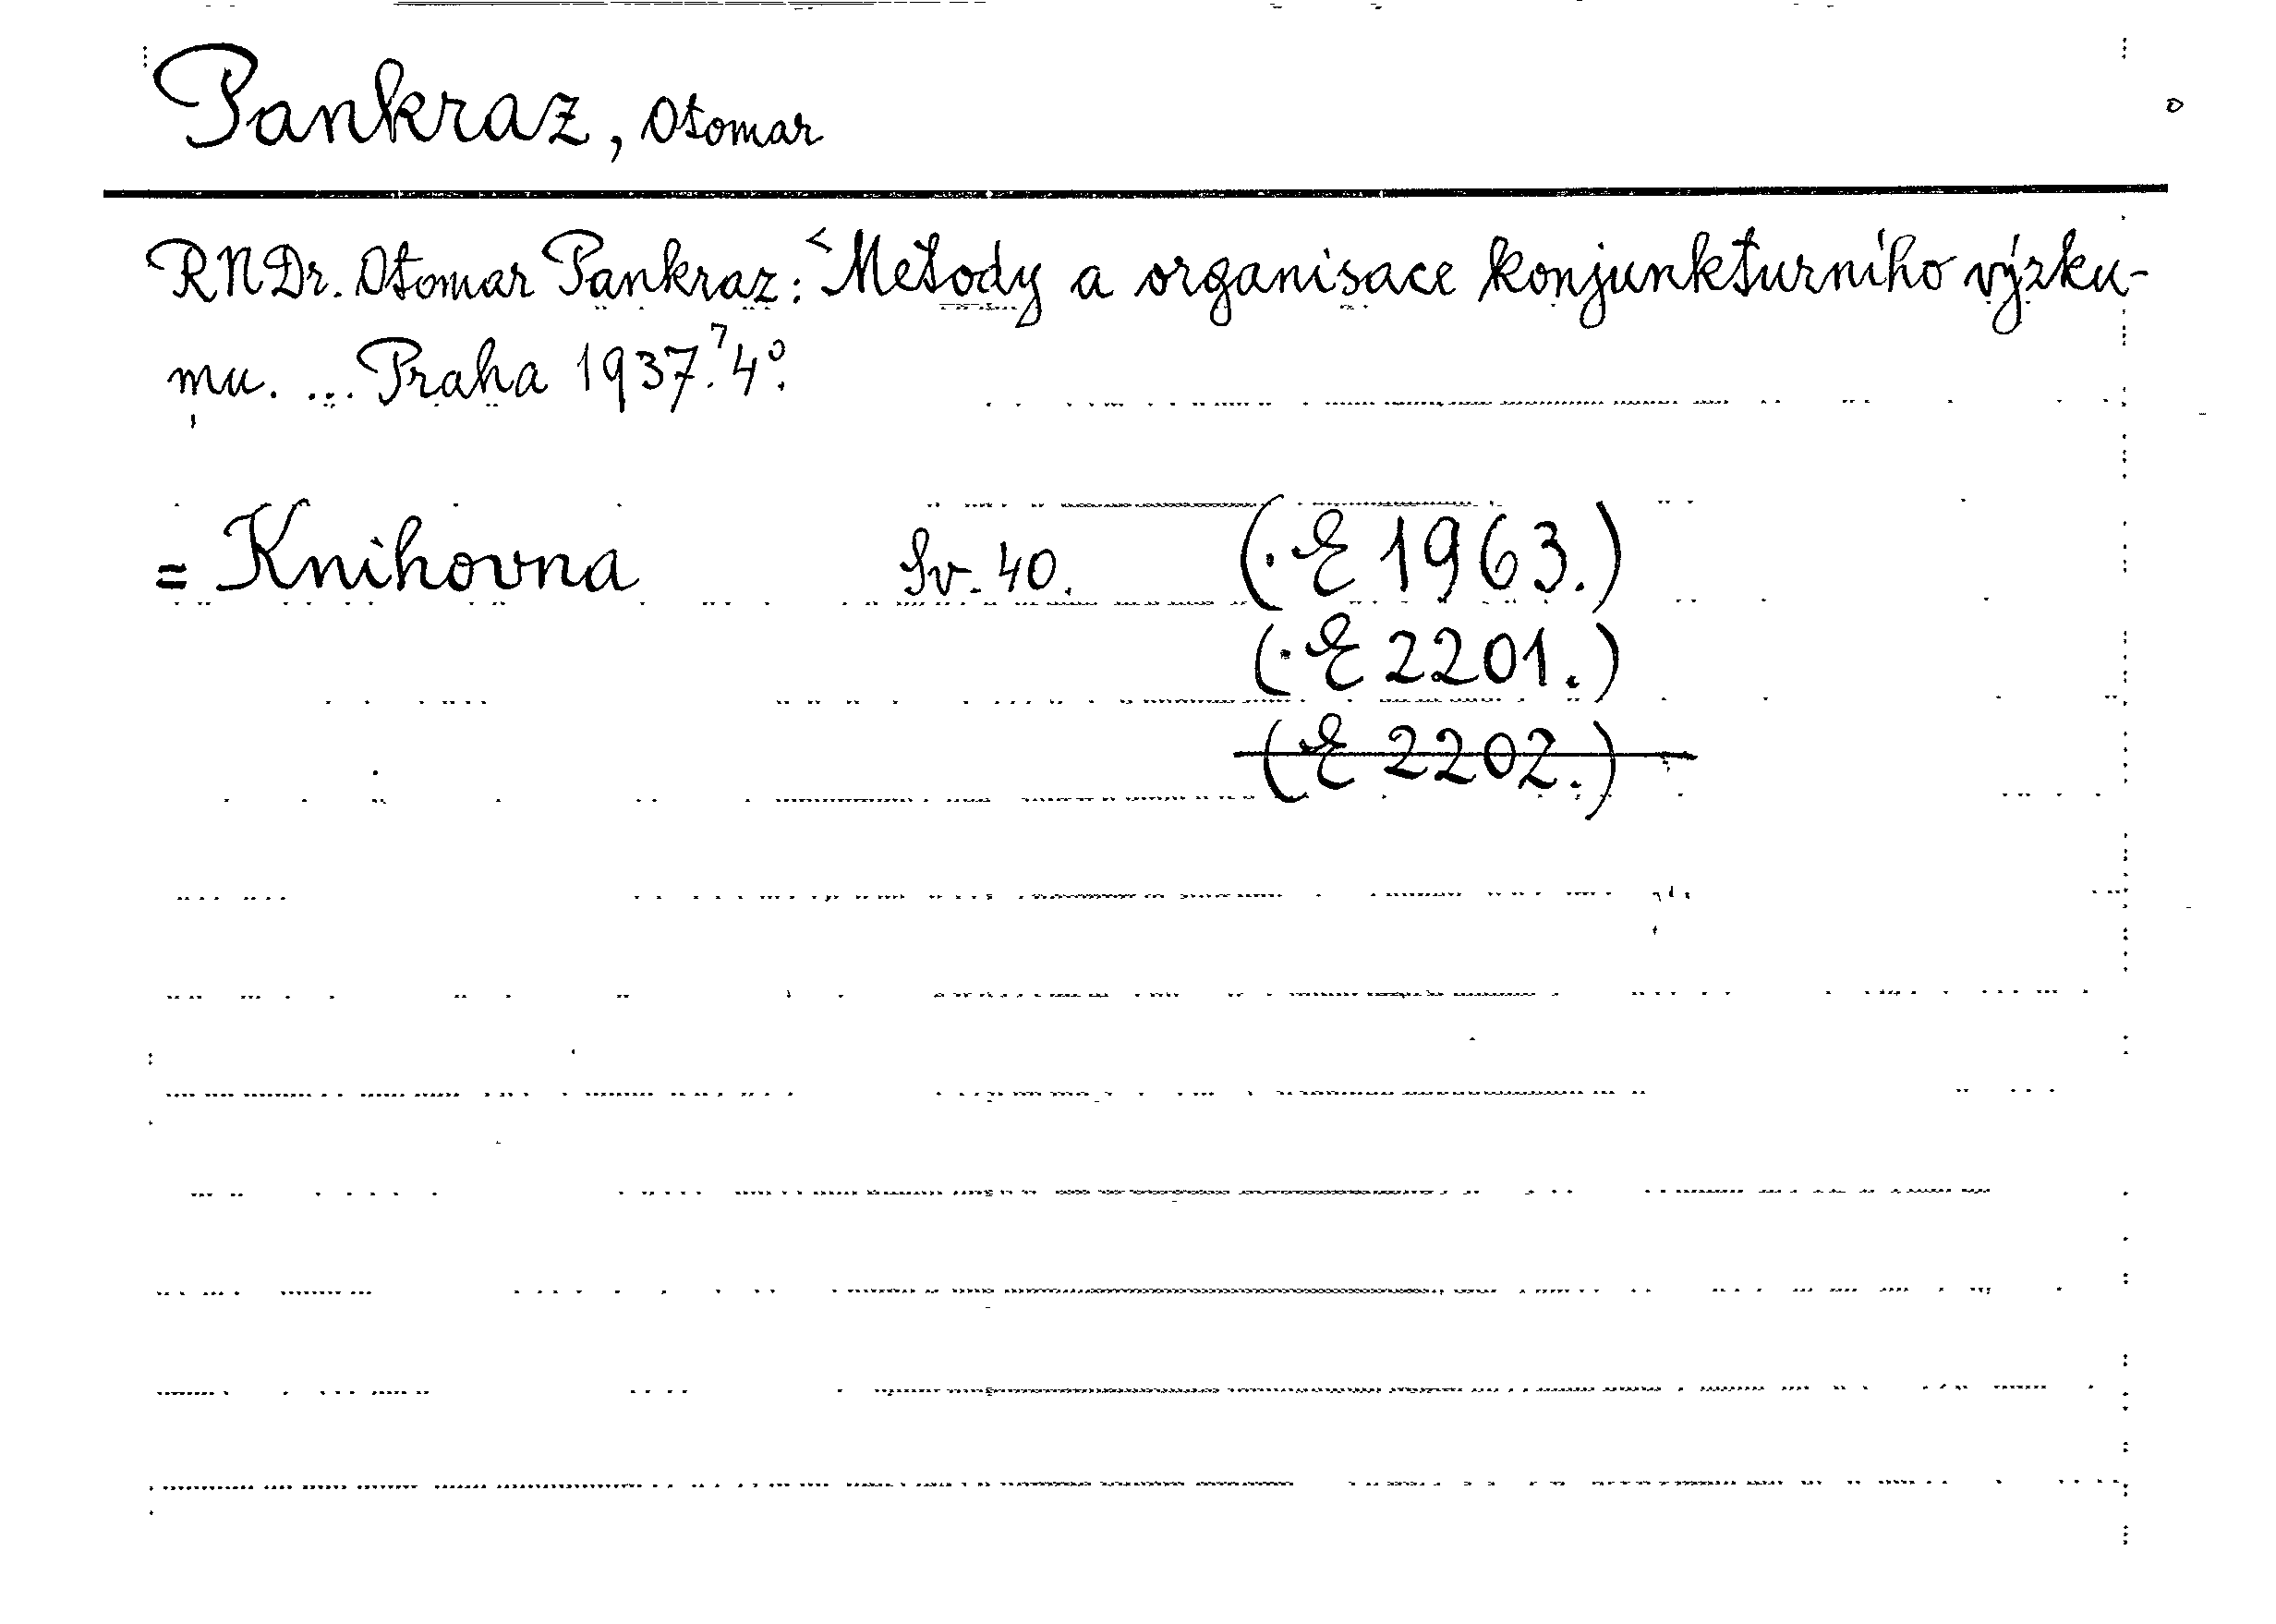 Pankraz, Otomar
RNDr. Otomar Pankraz: <Metody a organisace konjunkturního výzku-
mu. ... Praha 1937.⁷ 4°.
= Knihovna Sv. 40. (·E 1963.)
(·E 2201.)
(E 2202.)